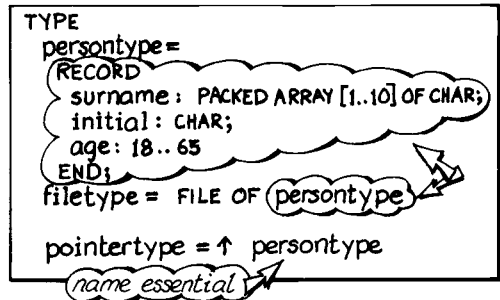 TYPE
persontype=
RECORD
surname: PACKED ARRAY [1..10] OF CHAR;
initial: CHAR;
age: 18..65
END;
filetype= FILE OF persontype
pointertype = ↑ persontype
name essential